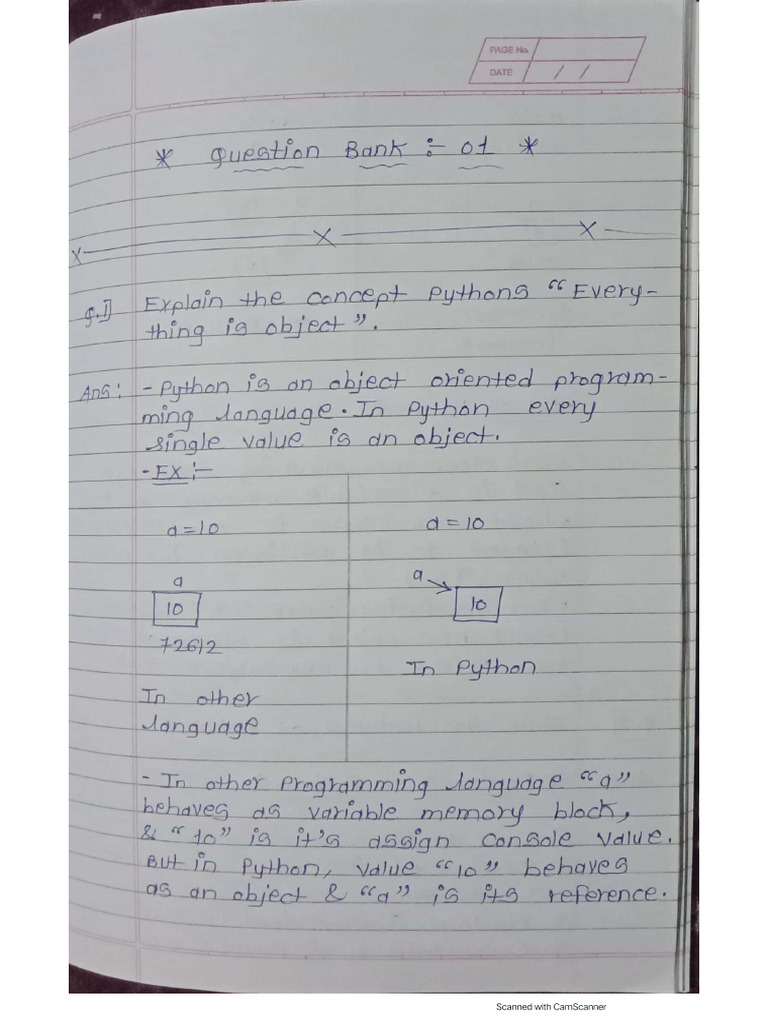 PAGE No.
DATE / /
* Question Bank :- 01 *
x x x
Q.1] Explain the concept Pythons "Every-
thing is object".
Ans: - Python is an object oriented program-
ming language. In Python every
single value is an object.
- EX :-
a = 10 a = 10
a a
10 10
72612
In Python
In other
language
- In other Programming language "a"
behaves as variable memory block,
& "10" is it's assign console value.
But in Python, value "10" behaves
as an object & "a" is its reference.
Scanned with CamScanner